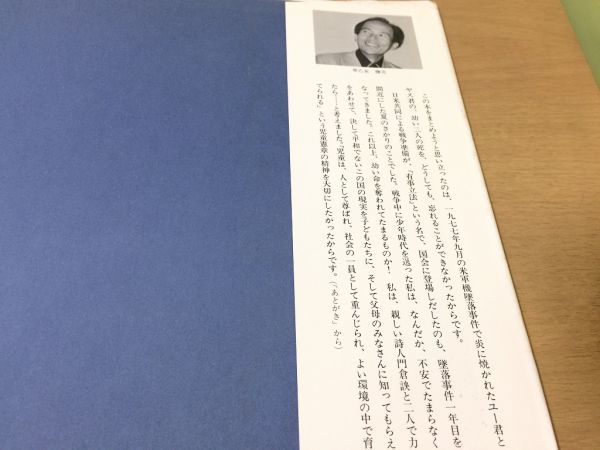 早乙女 勝元
この本をまとめようと思い立ったのは、一九七七年九月の米軍機墜落事件で炎に焼かれたユー君と
ヤス君の、幼い二人の死を、どうしても、忘れることができなかったからです。
日米共同による戦争準備が、「有事立法」という名で、国会に登場しだしたのも、墜落事件一年目を
間近にした夏のさかりのことでした。戦争中に少年時代を送った私は、なんだか、不安でたまらなく
なってきました。これ以上、幼い命を奪われてたまるものか! 私は、親しい詩人門倉訣と二人で力
をあわせて、決して平和でないこの国の現実を子どもたちに、そして父母のみなさんに知ってもらえ
たら——と考えました。「児童は、人として尊ばれ、社会の一員として重んじられ、よい環境の中で育
てられる」という児童憲章の精神を大切にしたかったからです。(「あとがき」から)